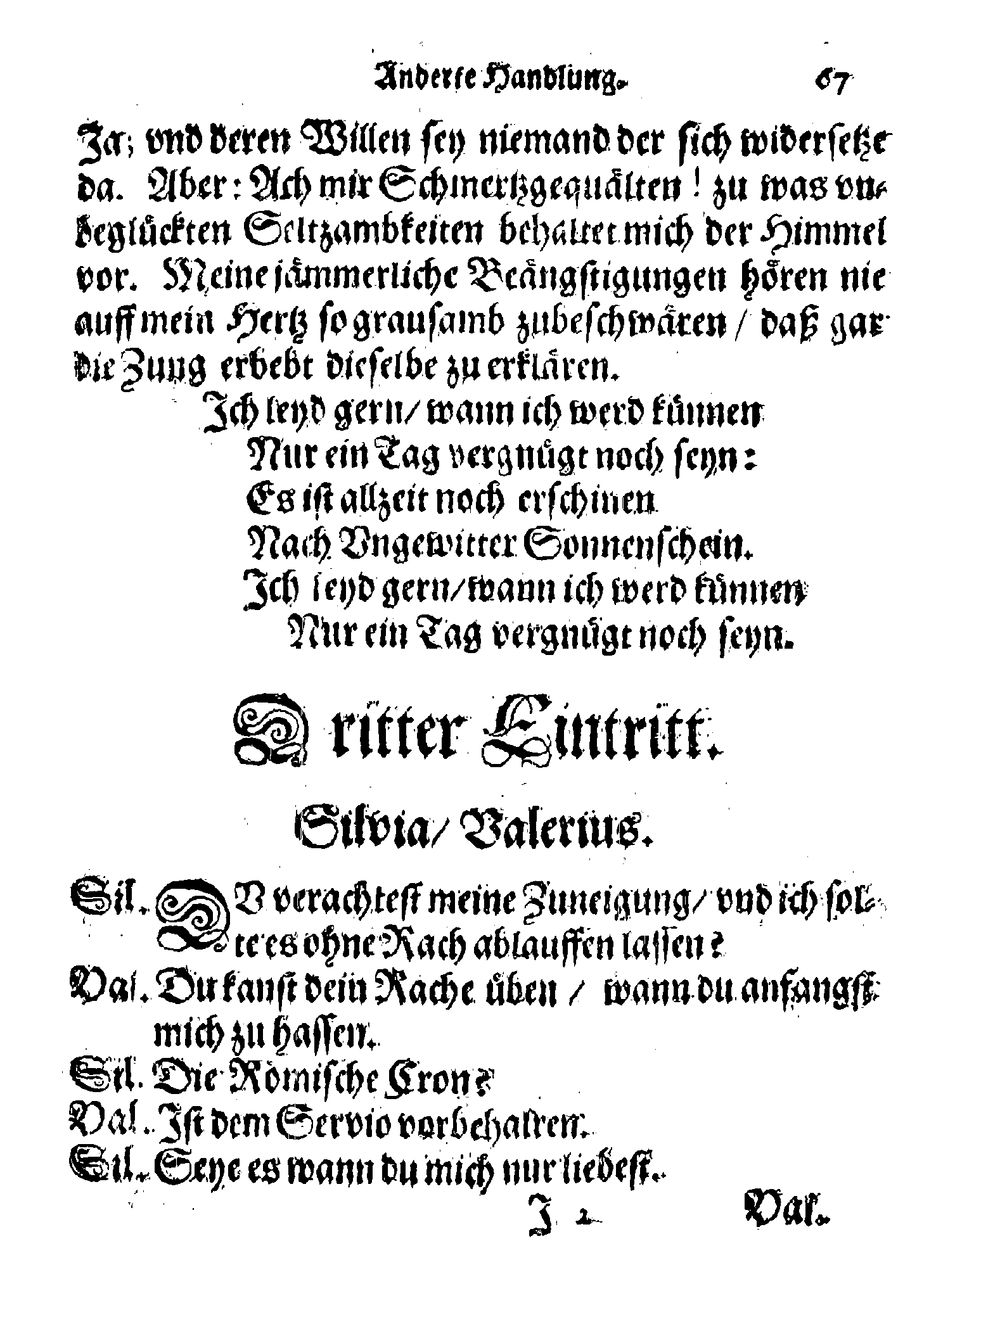 Anderte Handlung. 67
Ja; vnd deren Willen sey niemand der sich widersetze
da. Aber: Ach mir Schmertzgequälten! zu was vn-
beglückten Seltzambkeiten behaltet mich der Himmel
vor. Meine jämmerliche Beängstigungen hören nie
auff mein Hertz so grausamb zubeschwären / daß gar
die Zung erbebt dieselbe zu erklären.
Ich leyd gern/ wann ich werd künnen
Nur ein Tag vergnügt noch seyn:
Es ist allzeit noch erschinen
Nach Vngewitter Sonnenschein.
Ich leyd gern/wann ich werd künnen
Nur ein Tag vergnügt noch seyn.
Dritter Eintritt.
Silvia/ Valerius.
Sil. DV verachtest meine Zuneigung/ vnd ich sol-
te es ohne Rach ablauffen lassen?
Val. Du kanst dein Rache üben / wann du anfangst
mich zu hassen.
Sil. Die Römische Cron?
Val. Ist dem Servio vorbehalten.
Sil. Seye es wann du mich nur liebest.
J 2 Val.